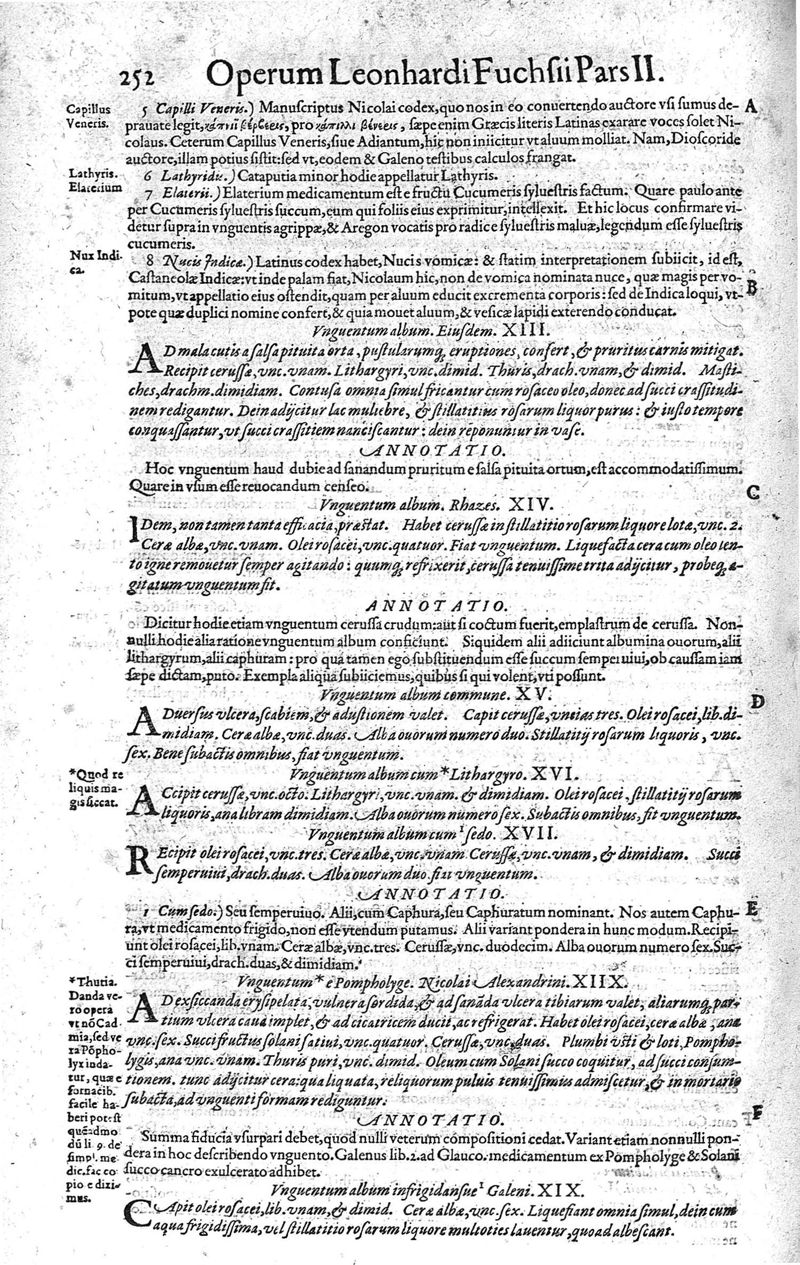 252 Operum Leonhardi Fuchsii Pars II.
Capillus
Veneris.
5 Capilli Veneris.) Manuscriptus Nicolai codex, quo nos in eo conuertendo auctore vsi sumus de- A
prauate legit, κάπνιῒ βέρβεεις, pro κάπιλλι βένεεις, sæpe enim Græcis literis Latinas exarare voces solet Ni-
colaus. Ceterum Capillus Veneris, siue Adiantum, hîc non iniicitur vt aluum molliat. Nam, Dioscoride
auctore, illam potius sistit: sed vt, eodem & Galeno testibus calculos frangat.
Lathyris.
6 Lathyridis.) Cataputia minor hodie appellatur Lathyris.
Elaterium
7 Elaterii.) Elaterium medicamentum est e fructu Cucumeris syluestris factum. Quare paulo ante
per Cucumeris syluestris succum, eum qui foliis eius exprimitur, intellexit. Et hic locus confirmare vi-
detur supra in vnguentis agrippæ, & Aregon vocatis pro radice syluestris maluæ, legendum esse syluestris
cucumeris.
Nux Indi-
ca.
8 Nucis Indicæ.) Latinus codex habet, Nucis vomicæ: & statim interpretationem subiicit, id est,
Castaneolæ Indicæ: vt inde palam fiat, Nicolaum hîc, non de vomica nominata nuce, quæ magis per vo- B
mitum, vt appellatio eius ostendit, quam per aluum educit excrementa corporis: sed de Indica loqui, vt-
pote quæ duplici nomine confert, & quia mouet aluum, & vesicæ lapidi exterendo conducat.
Vnguentum album. Eiusdem. XIII.
AD mala cutis a salsa pituita orta, pustularumq́, eruptiones, confert, & pruritus carnis mitigat.
Recipit cerussæ, vnc. vnam. Lithargyri, vnc. dimid. Thuris, drach. vnam, & dimid. Masti-
ches, drachm. dimidiam. Contusa omnia simul fricantur cum rosaceo oleo, donec ad succi crassitudi-
nem redigantur. Dein adijcitur lac muliebre, & stillatitius rosarum liquor purus: & iusto tempore
conquassantur, vt succi crassitiem nanciscantur: dein reponuntur in vase.
ANNOTATIO.
Hoc vnguentum haud dubie ad sanandum pruritum e salsa pituita ortum, est accommodatissimum.
Quare in vsum esse reuocandum censeo. C
Vnguentum album. Rhazes. XIV.
IDem, non tamen tanta efficacia, præstat. Habet cerussæ in stillatitio rosarum liquore lotæ, vnc. 2.
Ceræ albæ, vnc. vnam. Olei rosacei, vnc. quatuor. Fiat vnguentum. Liquefacta cera cum oleo len-
to igne remouetur semper agitando: quumq́, refrixerit, cerussa tenuissime trita adijcitur, probeq́, a-
gitatum vnguentum fit.
ANNOTATIO.
Dicitur hodie etiam vnguentum cerussa crudum: aut si coctum fuerit, emplastrum de cerussa. Non-
nulli hodie alia ratione vnguentum album conficiunt. Siquidem alii adiiciunt albumina ouorum, alii
lithargyrum, alii caphuram: pro qua tamen ego substituendum esse succum semperuiui, ob caussam iam
sæpe dictam, puto. Exempla aliqua subiiciemus, quibus si qui volent, vti possunt.
Vnguentum album commune. XV. D
ADuersus vlcera, scabiem, & adustionem valet. Capit cerussæ, vncias tres. Olei rosacei, lib. di-
midiam. Ceræ albæ, vnc. duas. Alba ouorum numero duo. Stillatitij rosarum liquoris, vnc.
sex. Bene subactis omnibus, fiat vnguentum.
*Quod re
liquis ma-
gis siccat.
Vnguentum album cum * Lithargyro. XVI.
ACcipit cerussæ, vnc. octo. Lithargyri, vnc. vnam. & dimidiam. Olei rosacei, stillatitij rosarum
liquoris, ana libram dimidiam. Alba ouorum numero sex. Subactis omnibus, fit vnguentum.
Vnguentum album cum 1 sedo. XVII.
REcipit olei rosacei, vnc. tres. Ceræ albæ, vnc. vnam. Cerussæ, vnc. vnam, & dimidiam. Succi
semperuiui, drach. duas. Alba ouorum duo. fiat vnguentum.
ANNOTATIO.
1 Cum sedo.) Seu semperuiuo. Alii, cum Caphura, seu Caphuratum nominant. Nos autem Caphu- E
ra, vt medicamento frigido, non esse vtendum putamus. Alii variant pondera in hunc modum. Recipi-
unt olei rosacei, lib. vnam. Ceræ albæ, vnc. tres. Cerussæ, vnc. duodecim. Alba ouorum numero sex. Suc-
ci semperuiui, drach. duas, & dimidiam.
*Thutia.
Danda ve-
ro opera
vt nō Cad
mia, sed ve
ra Pōpho-
lyx inda-
tur, quæ e
fornacib.
facile ha-
beri potest
quēadmo
dū li. 9. de
simpl. me
dic. fac co
pio e dixi-
mus.
Vnguentum * e Pompholyge. Nicolai Alexandrini. XIIX.
AD exsiccanda erysipelata, vulnera sordida, & ad sanāda vlcera tibiarum valet, aliarumq́, par-
tium vlcera caua implet, & ad cicatricem ducit, ac refrigerat. Habet olei rosacei, ceræ albæ, ana
vnc. sex. Succi fructus solani satiui, vnc. quatuor. Cerussæ, vnc. duas. Plumbi vsti & loti, Pompho-
lygis, ana vnc. vnam. Thuris puri, vnc. dimid. Oleum cum Solani succo coquitur, ad succi consum-
tionem. tunc adijcitur cera: qua liquata, reliquorum puluis tenuissimus admiscetur, & in mortario
subacta, ad vnguenti formam rediguntur.
ANNOTATIO. F
Summa fiducia vsurpari debet, quod nulli veterum compositioni cedat. Variant etiam nonnulli pon-
dera in hoc describendo vnguento. Galenus lib. 2. ad Glauco. medicamentum ex Pompholyge & Solani
succo cancro exulcerato adhibet.
Vnguentum album infrigidansue 1 Galeni. XIX.
CApit olei rosacei, lib. vnam, & dimid. Ceræ albæ, vnc. sex. Liquefiant omnia simul, dein cum
aqua frigidissima, vel stillatitio rosarum liquore multoties lauentur, quoad albescant.